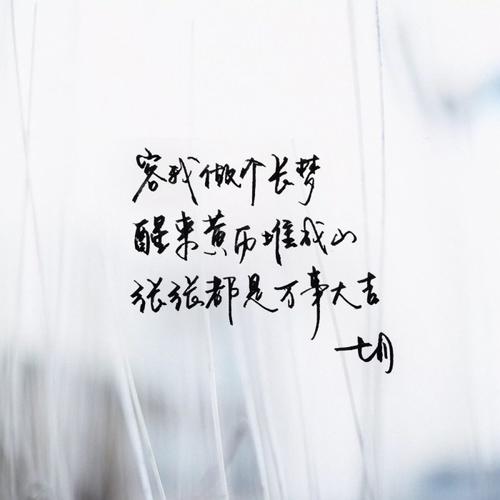 容我做个长梦
醒来黄历堆成山
张张都是万事大吉
七月